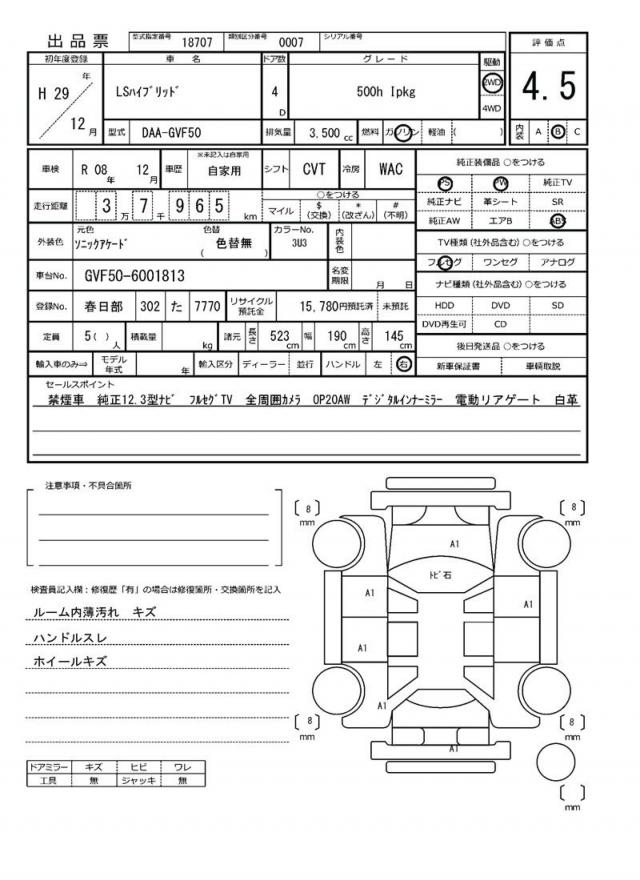 出品票 型式指定番号 18707 類別区分番号 0007 シリアル番号
初年度登録 車名 ドア数 グレード 駆動 評価点
H 29 年 12 月 LSハイブリッド 4 D 500h Ipkg 2WD 4WD 4.5
型式 DAA-GVF50 排気量 3,500 cc 燃料 ガソリン 軽油 ( ) 内装 A B C
車検 R 08 年 12 月 車歴 ※未記入は自家用 自家用 シフト CVT 冷房 WAC
純正装備品 ○をつける
PS PW 純正TV
純正ナビ 革シート SR
純正AW エアB ABS
走行距離 3 万 7 千 9 6 5 km
○をつける
マイル $ (交換) * (改ざん) # (不明)
外装色 元色 ソニックアゲード 色替 ( 色替無 ) カラーNo. 3U3 内装色
TV種類 (社外品含む) ○をつける
フルセグ ワンセグ アナログ
車台No. GVF50-6001813 名変期限 月 日
ナビ種類 (社外品含む) ○をつける
HDD DVD SD
DVD再生可 CD
登録No. 春日部 302 た 7770 リサイクル預託金 15,780円預託済 未預託
定員 5( ) 人 積載量 kg 諸元 長さ 523 cm 幅 190 cm 高さ 145 cm
後日発送品 ○をつける
新車保証書 車輌取説
輸入車のみ⇒ モデル年式 年 輸入区分 ディーラー 並行 ハンドル 左 右
セールスポイント
禁煙車 純正12.3型ナビ フルセグTV 全周囲カメラ OP20AW デジタルインナーミラー 電動リアゲート 白革
注意事項・不具合箇所
検査員記入欄:修復歴「有」の場合は修復箇所・交換箇所を記入
ルーム内薄汚れ キズ
ハンドルスレ
ホイールキズ
ドアミラー キズ ヒビ ワレ
工具 無 ジャッキ 無
[ 8 ] mm
[ 8 ] mm
A1
トビ石
A1
A1
A1
A1
[ 8 ] mm
[ 8 ] mm
A1
[ ] mm